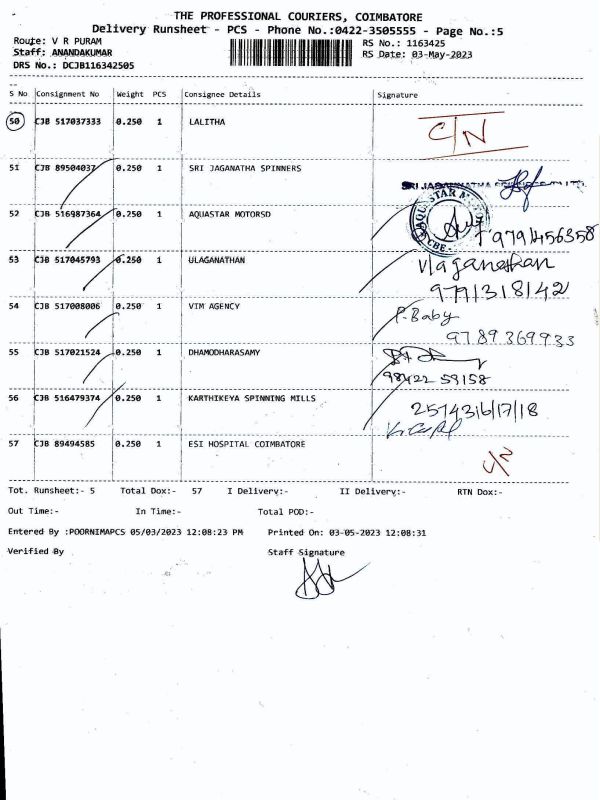 THE PROFESSIONAL COURIERS, COIMBATORE
Delivery Runsheet - PCS - Phone No.:0422-3505555 - Page No.:5
Route: V R PURAM RS No.: 1163425
Staff: ANANDAKUMAR RS Date: 03-May-2023
DRS No.: DCJB116342505
S No Consignment No Weight PCS Consignee Details Signature
50 CJB 517037333 0.250 1 LALITHA C/N
51 CJB 89504037 0.250 1 SRI JAGANATHA SPINNERS
52 CJB 516987364 0.250 1 AQUASTAR MOTORSD 9791456358
53 CJB 517045793 0.250 1 ULAGANATHAN Vlaganathan
9791318142
54 CJB 517008006 0.250 1 VIM AGENCY P. Baby
9789369933
55 CJB 517021524 0.250 1 DHAMODHARASAMY
98422 59158
56 CJB 516479374 0.250 1 KARTHIKEYA SPINNING MILLS 2574316/17/18
57 CJB 89494585 0.250 1 ESI HOSPITAL COIMBATORE C/N
Tot. Runsheet:- 5 Total Dox:- 57 I Delivery:- II Delivery:- RTN Dox:-
Out Time:- In Time:- Total POD:-
Entered By :POORNIMAPCS 05/03/2023 12:08:23 PM Printed On: 03-05-2023 12:08:31
Verified By Staff Signature